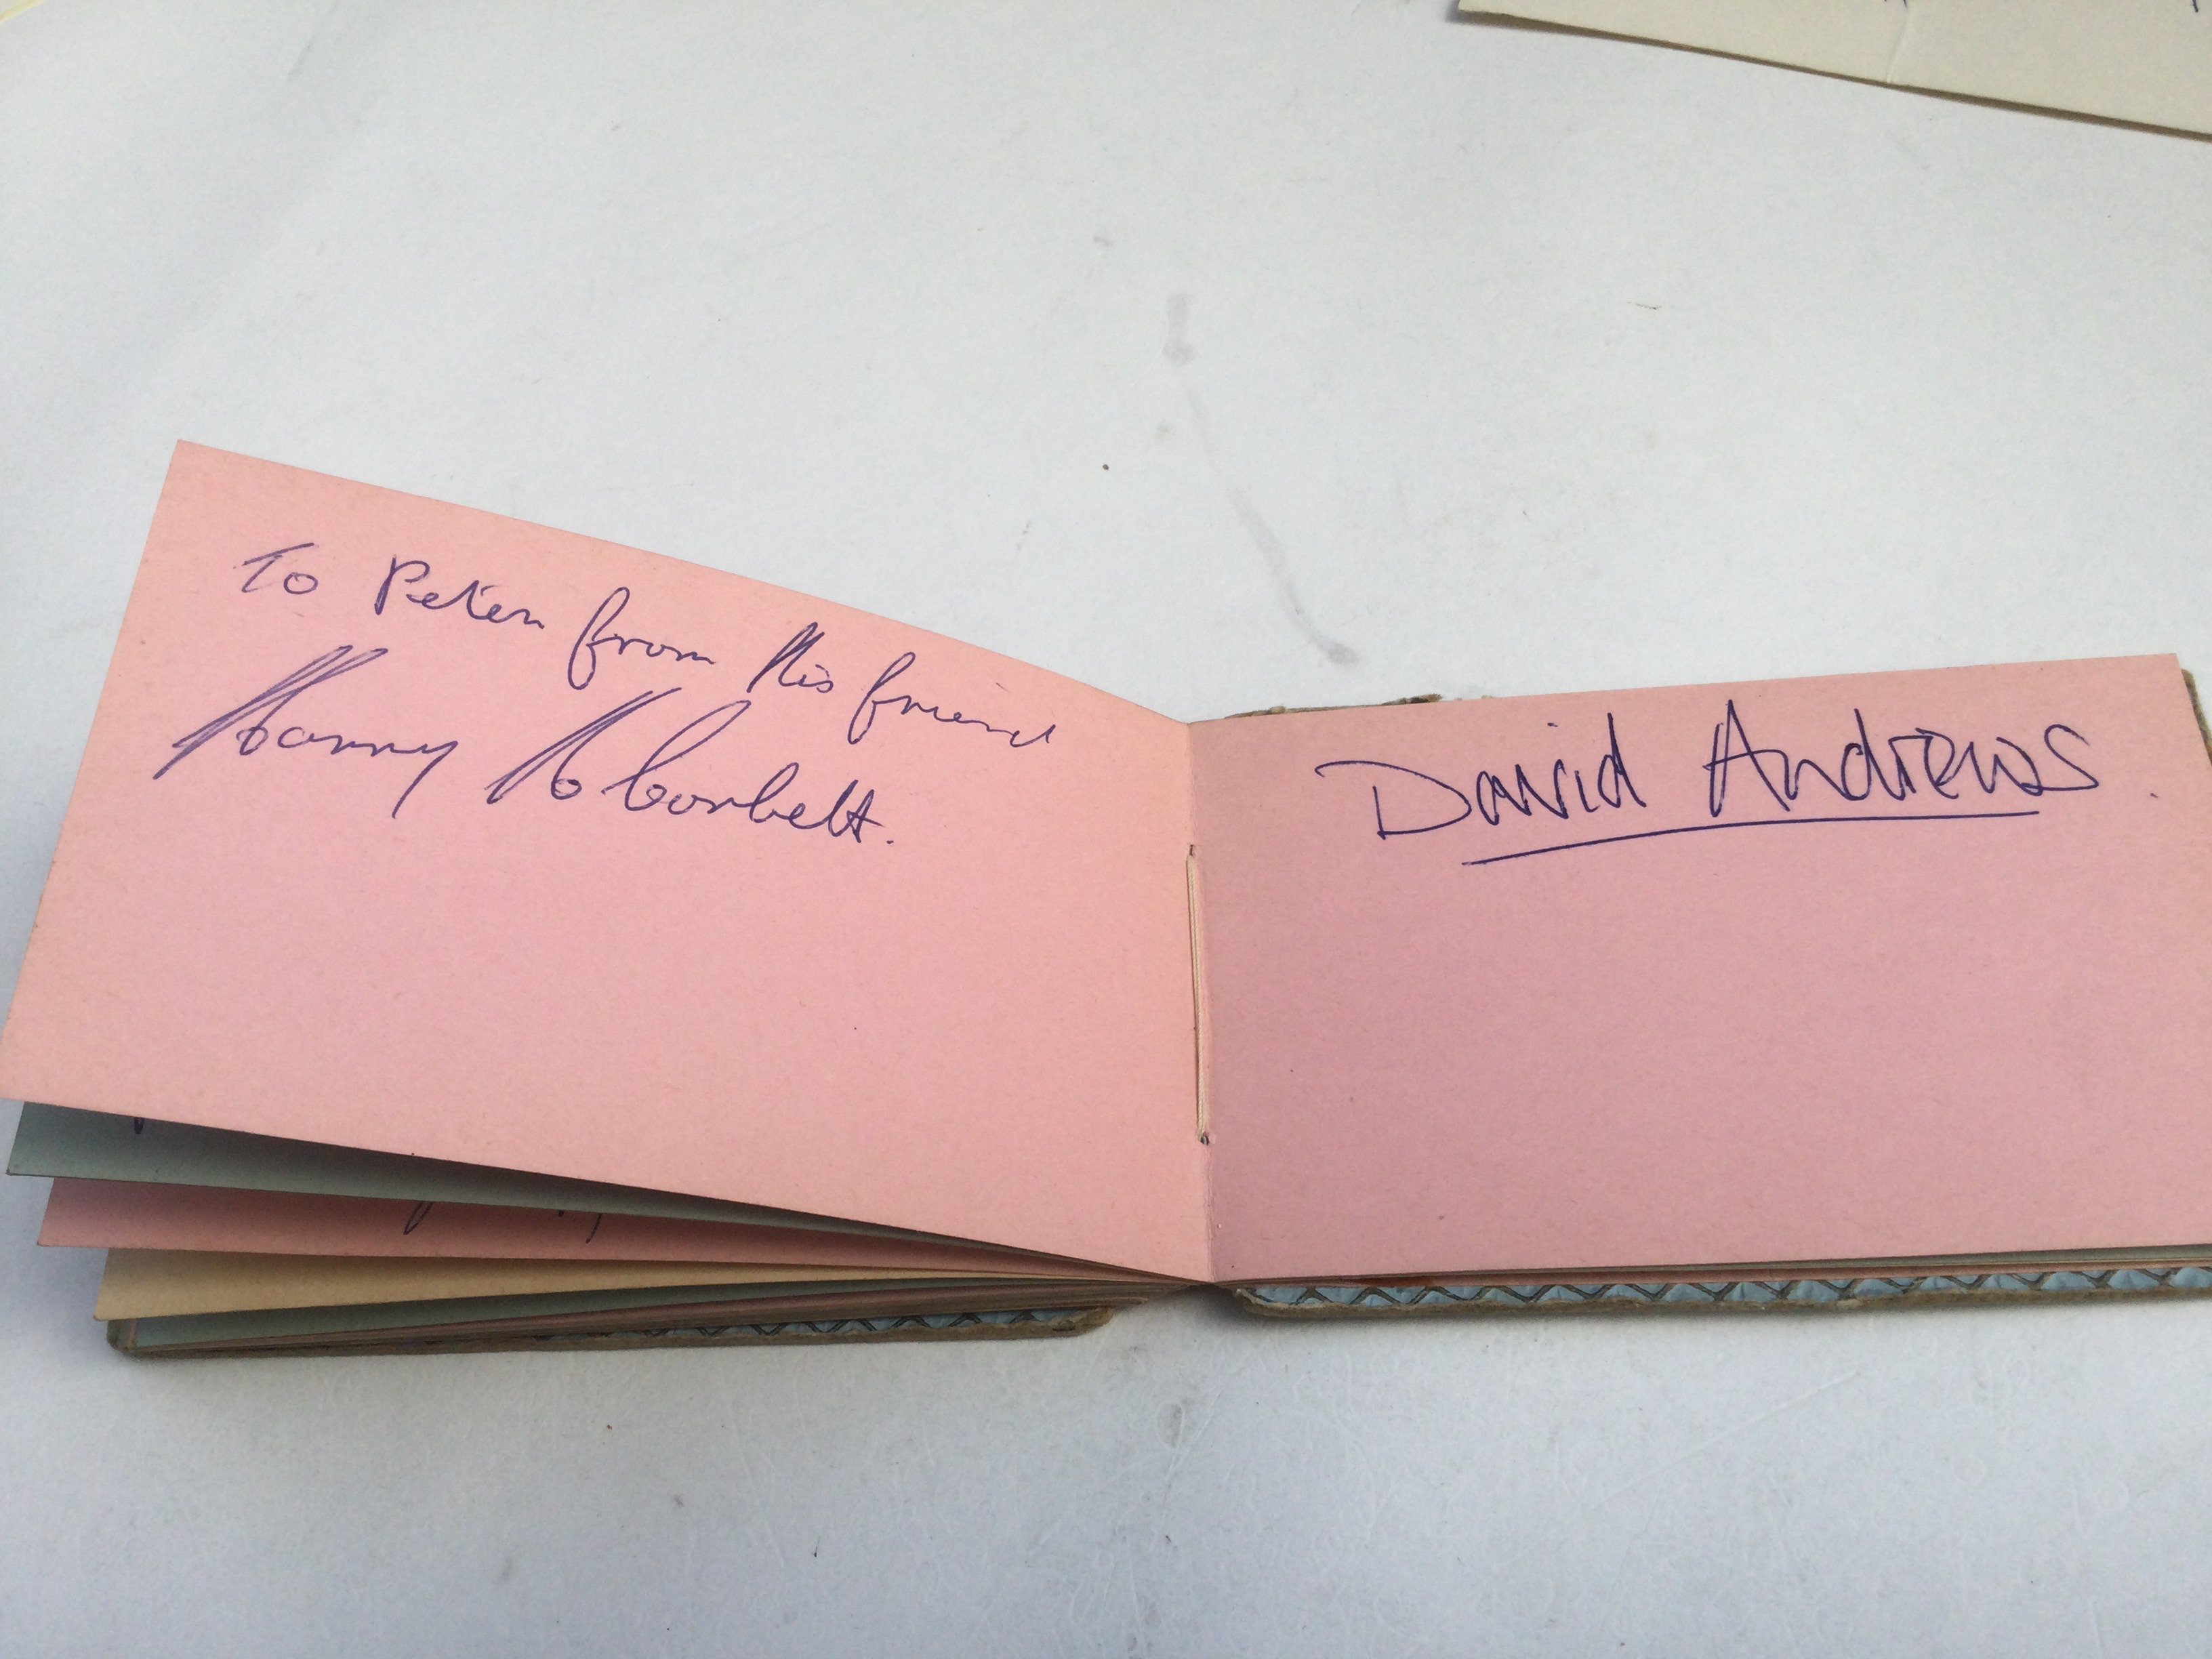 To Peter from his friend
Harry H Corbett.
David Andrews